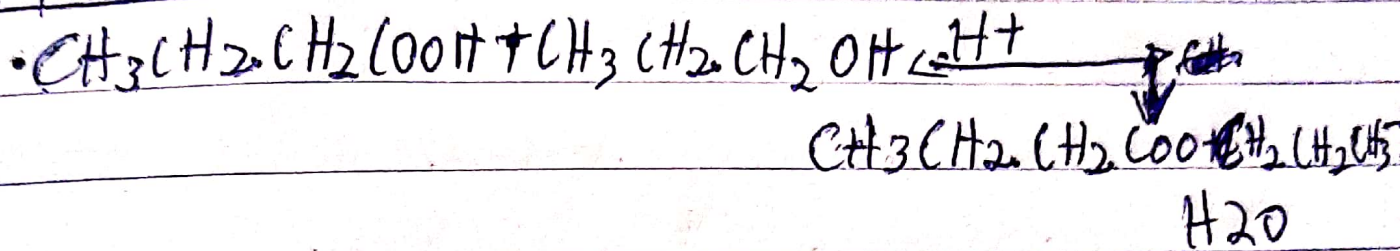 .CH3CH2.CH2COOH + CH3CH2.CH2OH ⇌ H+
CH3CH2.CH2COOCH2CH2CH3
H2O